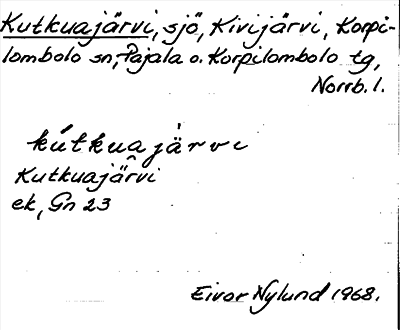 Kutkuajärvi, sjö, Kivijärvi, Korpi-
lombolo sn, Pajala o. Korpilombolo tg,
Norrb. l.
kútkuajàrvi
Kutkuajärvi
ek, Gn 23
Eivor Nylund 1968.